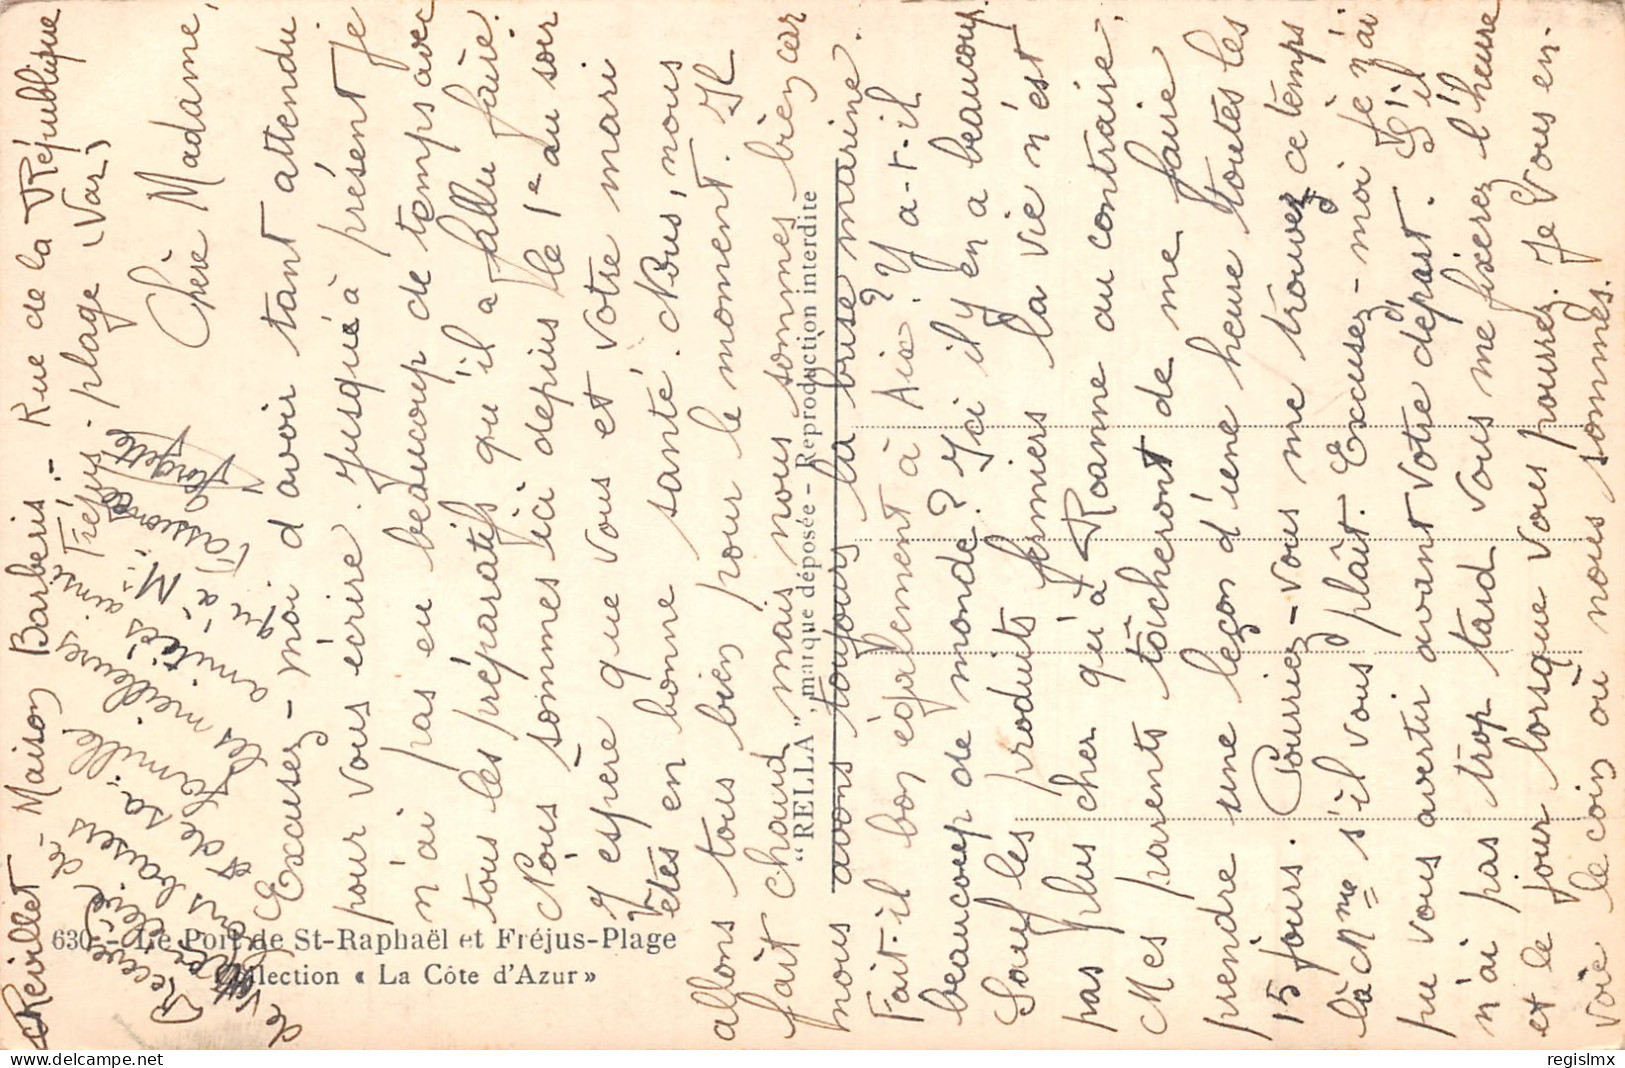 Reuillet - Maison Barberis - Rue de la République
Fréjus-plage (Var)
Chère Madame,
Excusez-moi d'avoir tant attendu
pour vous écrire. Jusqu'à présent je
n'ai pas eu beaucoup de temps avec
tous les préparatifs qu'il a fallu faire.
Nous sommes ici depuis le 1er au soir
J'espère que vous et votre mari
êtes en bonne santé. Nous, nous
allons tous bien pour le moment. Il
fait chaud mais nous sommes bien car
nous avons toujours la brise marine.
Fait-il bon également à Aix? Y a-t-il
beaucoup de monde? Ici il y en a beaucoup.
Sauf les produits fermiers la vie n'est
pas plus cher qu'à Roanne au contraire.
Mes parents tâcheront de me faire
prendre une leçon d'une heure toutes les
15 jours. Pourriez-vous me trouvez ce temps
là Mme s'il vous plaît. Excusez-moi je n'ai
pu vous avertir avant votre départ. S'il
n'ai pas trop tard vous me fixerez l'heure
et le jour lorsque vous pourrez. Je vous en-
voie le coin où nous sommes.
Recevez de
votre élève
bons baisers
et de sa
famille
les meilleures
amitiés ainsi
qu'à Mr
Georgette
630 - Le Port de St-Raphaël et Fréjus-Plage
Collection « La Côte d'Azur »
"RELLA", marque déposée - Reproduction interdite
regislmx